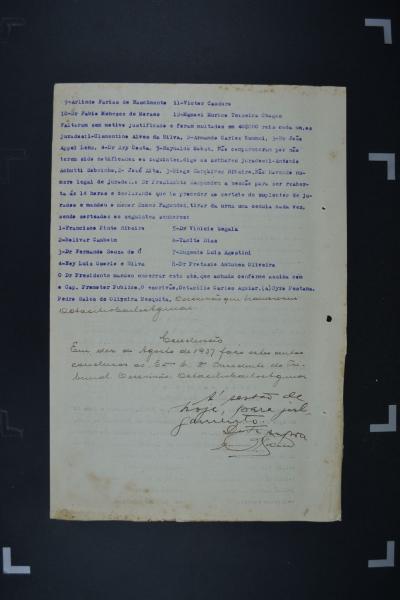 9-Arlindo Farias do Nascimento 11-Victor Candura
10-Dr Fabio Menezes de Moraes 12-Manoel Murios Teixeira Chagas
Faltaram sem motivo justificado e foram multados em 40$000 reis cada um,os
jurados:1-Clementino Alves da Silva, 2-Armando Carlos 3-Dr João
Appel Lenz, 4-Dr Ary Costa, 5-Reynaldo Não compareceram por não
terem sido notificados os seguintes, digo os senhores jurados:1-Antonio
2-José 3-Diogo Gonçalves Ribeiro, Não havendo nu-
mero legal de jurados, Dr Presidente suspendeu a sessão para ser reaber-
ta ás 14 horas e declarando que ia proceder ao sorteio de suplentes de ju-
rados e mandou o menor Fagundes, tirar da urna uma cedula cada vez,
sendo sorteados os seguintes senhores:
1-Francisco Pinto Ribeiro 5-Dr Vinicio
2-Bolivar 6-Tacito Dias
3-Dr Fernando Souza do Ó 7-Eugenio Luiz Agostini
4-Ney Luiz e Silva 8-Dr Protasio Antunes Oliveira
O Dr Presidente mandou encerrar esta ata, que achada conforme assina com
o Cap. Promotor Publico, O escrivão, Octacilio Carlos Aguiar. (a) Cyro Pestana.
Pedro Sales de Oliveira Mesquita. O escrivão que
Octacilio Carlos Aguiar
Conclusão
Em dez de Agosto de 1937 faço estes autos
conclusos ao Exmo. Sr. Dr Presidente do Tri-
bunal O escrivão Octacilio Carlos Aguiar
Á sessão de
hoje, para jul-
gamento.
Data supra